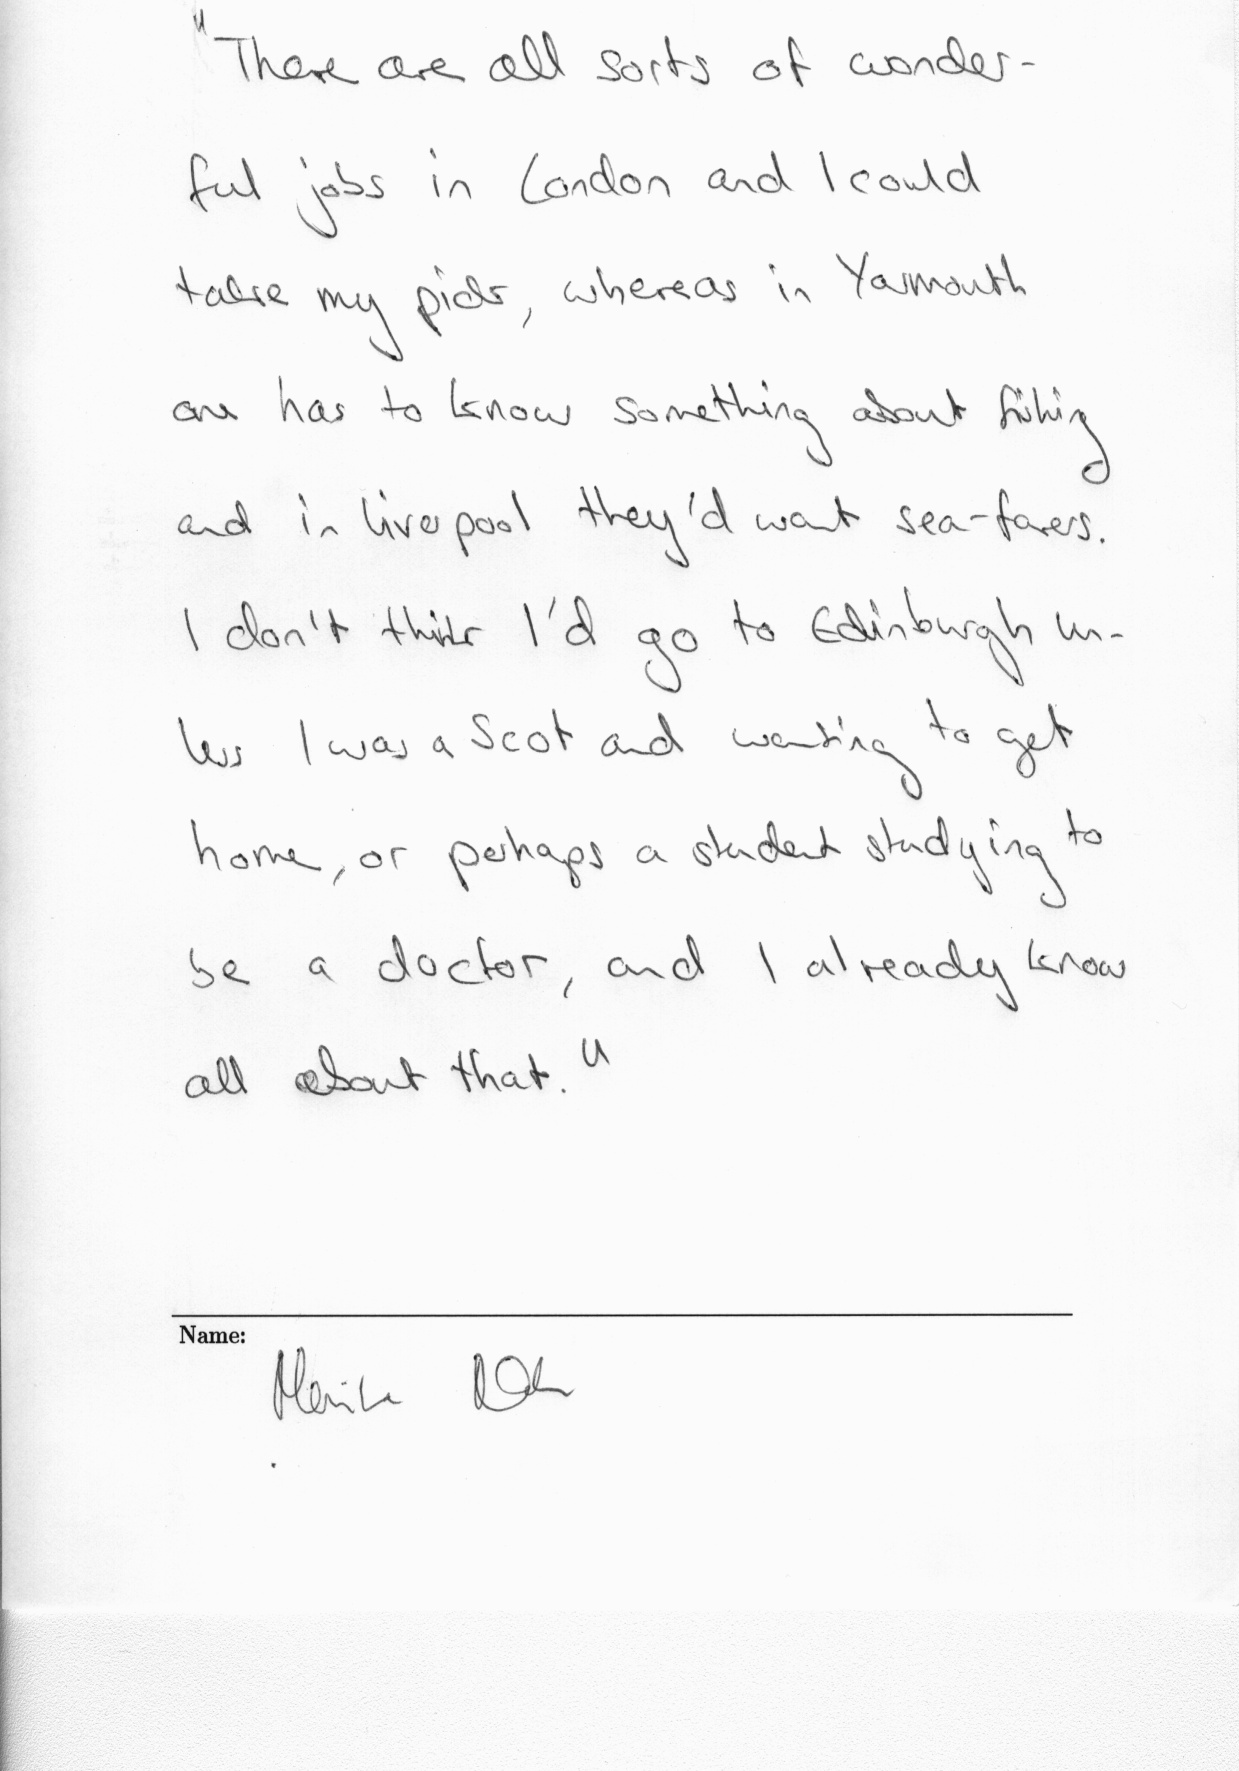 "There are all sorts of wonder-
ful jobs in London and I could
take my pick, whereas in Yarmouth
one has to know something about fishing
and in Liverpool they'd want sea-farers.
I don't think I'd go to Edinburgh un-
less I was a Scot and wanting to get
home, or perhaps a student studying to
be a doctor, and I already know
all about that."
Name: